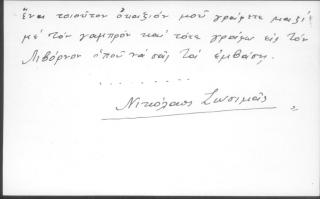 ἕνα τοιοῦτον ὀκαζιόν μοῦ γράφετε μαζί
μέ τόν γαμπρόν καί τότε γράφω εἰς τόν
Λιβόρνον ὁποῦ νά σᾶς τά ἐμβάση.
. . . . . . .
Νικόλαος Ζωσιμᾶς